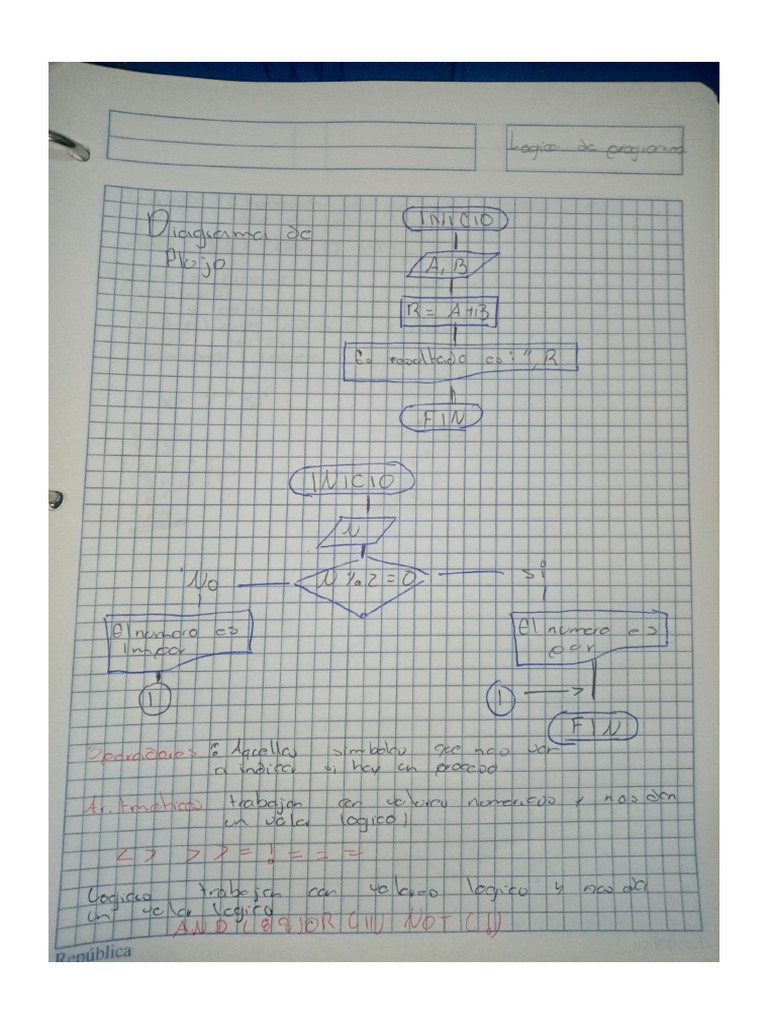 Logica de programa
Diagrama de
flujo
INICIO
A, B
R = A+B
Es resultado es: ", R
FIN
INICIO
N
No
N % 2 = 0
si
El numero es
Impar
El numero es
par
1
1
FIN
Operadores: Aquellas simbolos que nao van
a indicar si hay un proceso
Aritmetico trabajan con valores numericos y nos dan
un valor logico
< > > > = ! = = =
Logicos trabajan con valores logico y nos da
un valor logico
AND (&&) OR (||) NOT (!)
República